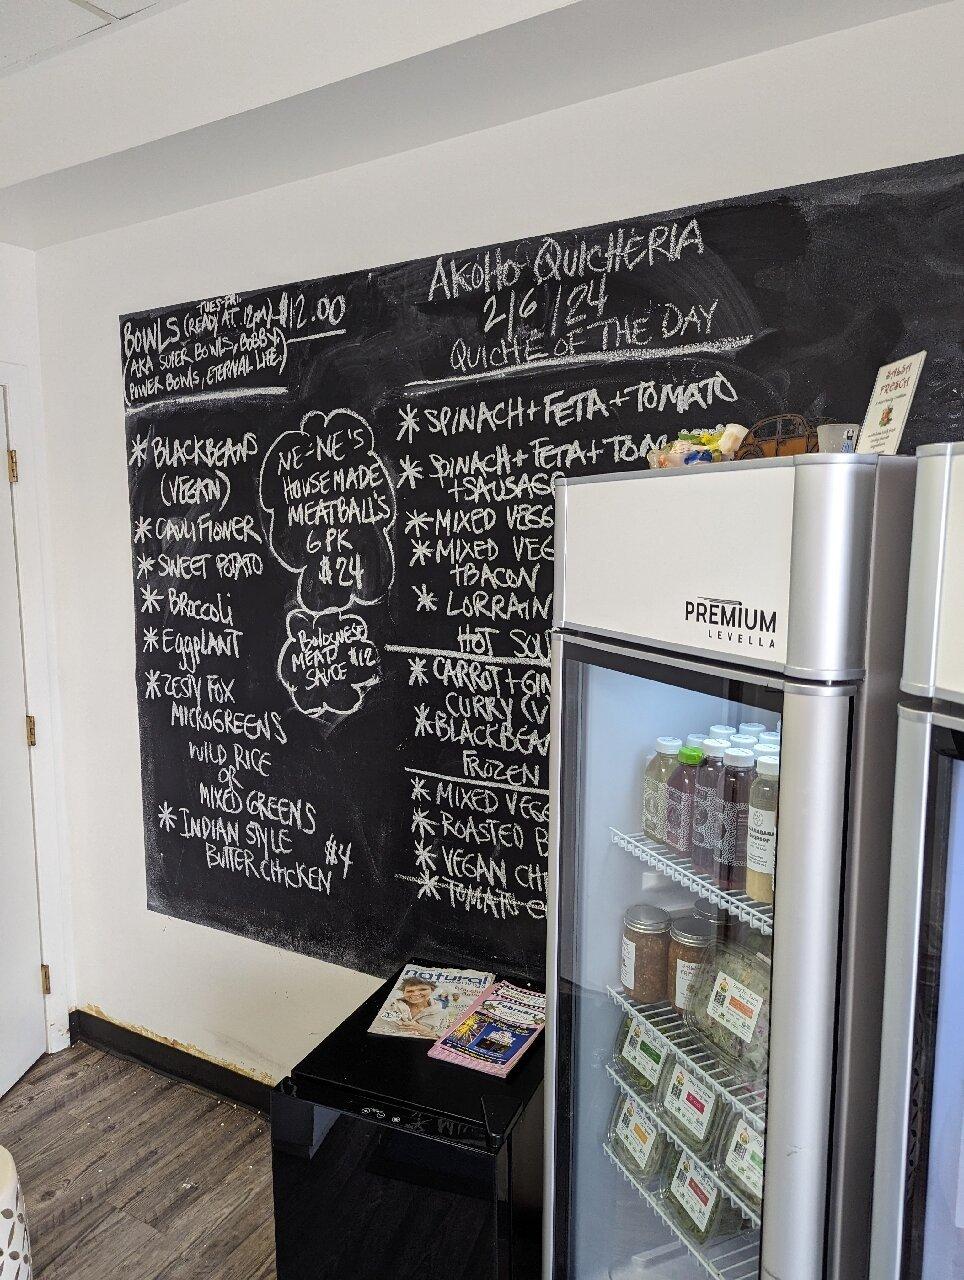 TUES-FRI.
BOWLS (READY AT 12PM) $12.00
(AKA SUPER BOWLS, BOBBY,
POWER BOWLS, ETERNAL LIFE)
* BLACKBEANS
(VEGAN)
* CAULIFLOWER
* SWEET POTATO
* BROCCOLI
* EggPLANT
* ZESTY FOX
MICROGREENS
WILD RICE
OR
MIXED GREENS
* INDIAN STYLE
BUTTER CHICKEN $4
NE-NE'S
HOUSEMADE
MEATBALL'S
6 PK
$24
BOLOGNESE
MEAT
SAUCE $12
AKOHO QUICHERIA
2/6/24
QUICHE OF THE DAY
* SPINACH + FETA + TOMATO
* SPINACH + FETA + TOM
+ SAUSAG
* MIXED VEGG
* MIXED VEG
+BACON
* LORRAIN
HOT SOU
* CARROT + GIN
CURRY (V
* BLACKBEAN
FROZEN
* MIXED VEGG
* ROASTED
* VEGAN CH
* TOMATO
SALSA
FRESCA
PREMIUM
LEVELLA
natural
February